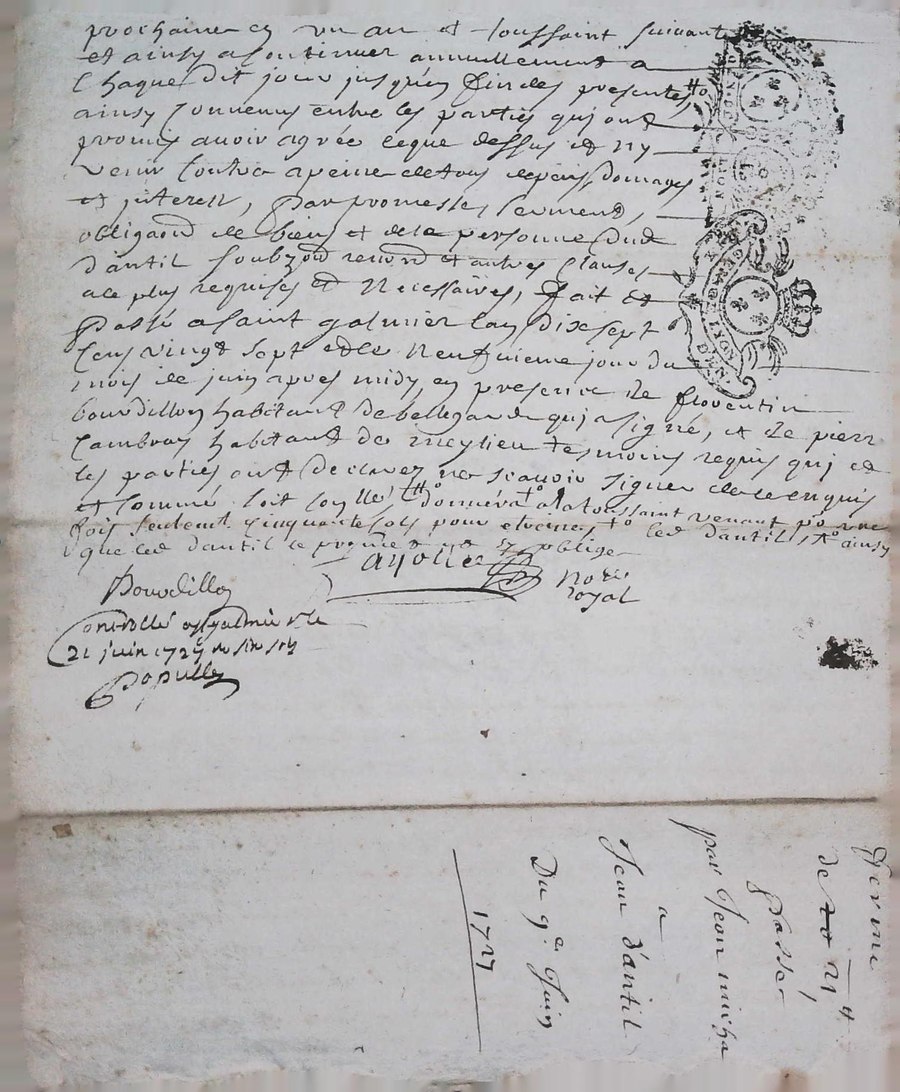 prochaine en un an et toussaint suivant
et ainsy a continuer annuellement a
chaque dit jour jusqu'en fin des presentes
ainsy convenus entre les parties qui ont
promis avoir agrée ceque dessus et ny
venir contre a peine de tous depens, domages
et interest, par promesses, serment,
obligaōn de biens et de sa personne dud
dantil renond et autres clauses
a ce plus requises et necessaires, fait et
passé a saint galmier lan dix sept
cens vingt sept et le neufvieme jour du
mois de juin apres midy, en presence de florentin
bourdillon habitant de bellegarde qui a signé, et de pierre
habitant de meylieu tesmoins requis qui et
les parties ont declarez ne scavoir signer de ce enquis
et sommé soit donnera a la toussaint venant pō une
fois seulemt cinquante sols pour etrenes led dantil, ainsy
que led dantil le promet et sy oblige
Bourdillon
nore
royal
Controllé a st galmier le
21 juin 1727 six sols
ferme
de 21
passé
par Jean micha
a
Jean dantil
Du 9e Juin
1727